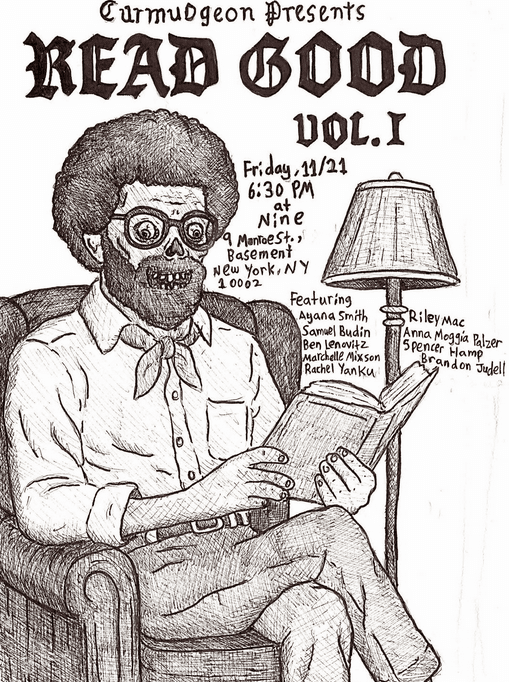 Curmudgeon Presents
READ GOOD
VOL.I
Friday, 11/21
6:30 PM
at
Nine
9 Monroe St.,
Basement
New York, NY
10002
Featuring
Ayana Smith
Samuel Budin
Ben Lenovitz
Marchelle Mixson
Rachel Yanku
Riley Mac
Anna Moggia Palzer
Spencer Hamp
Brandon Judell